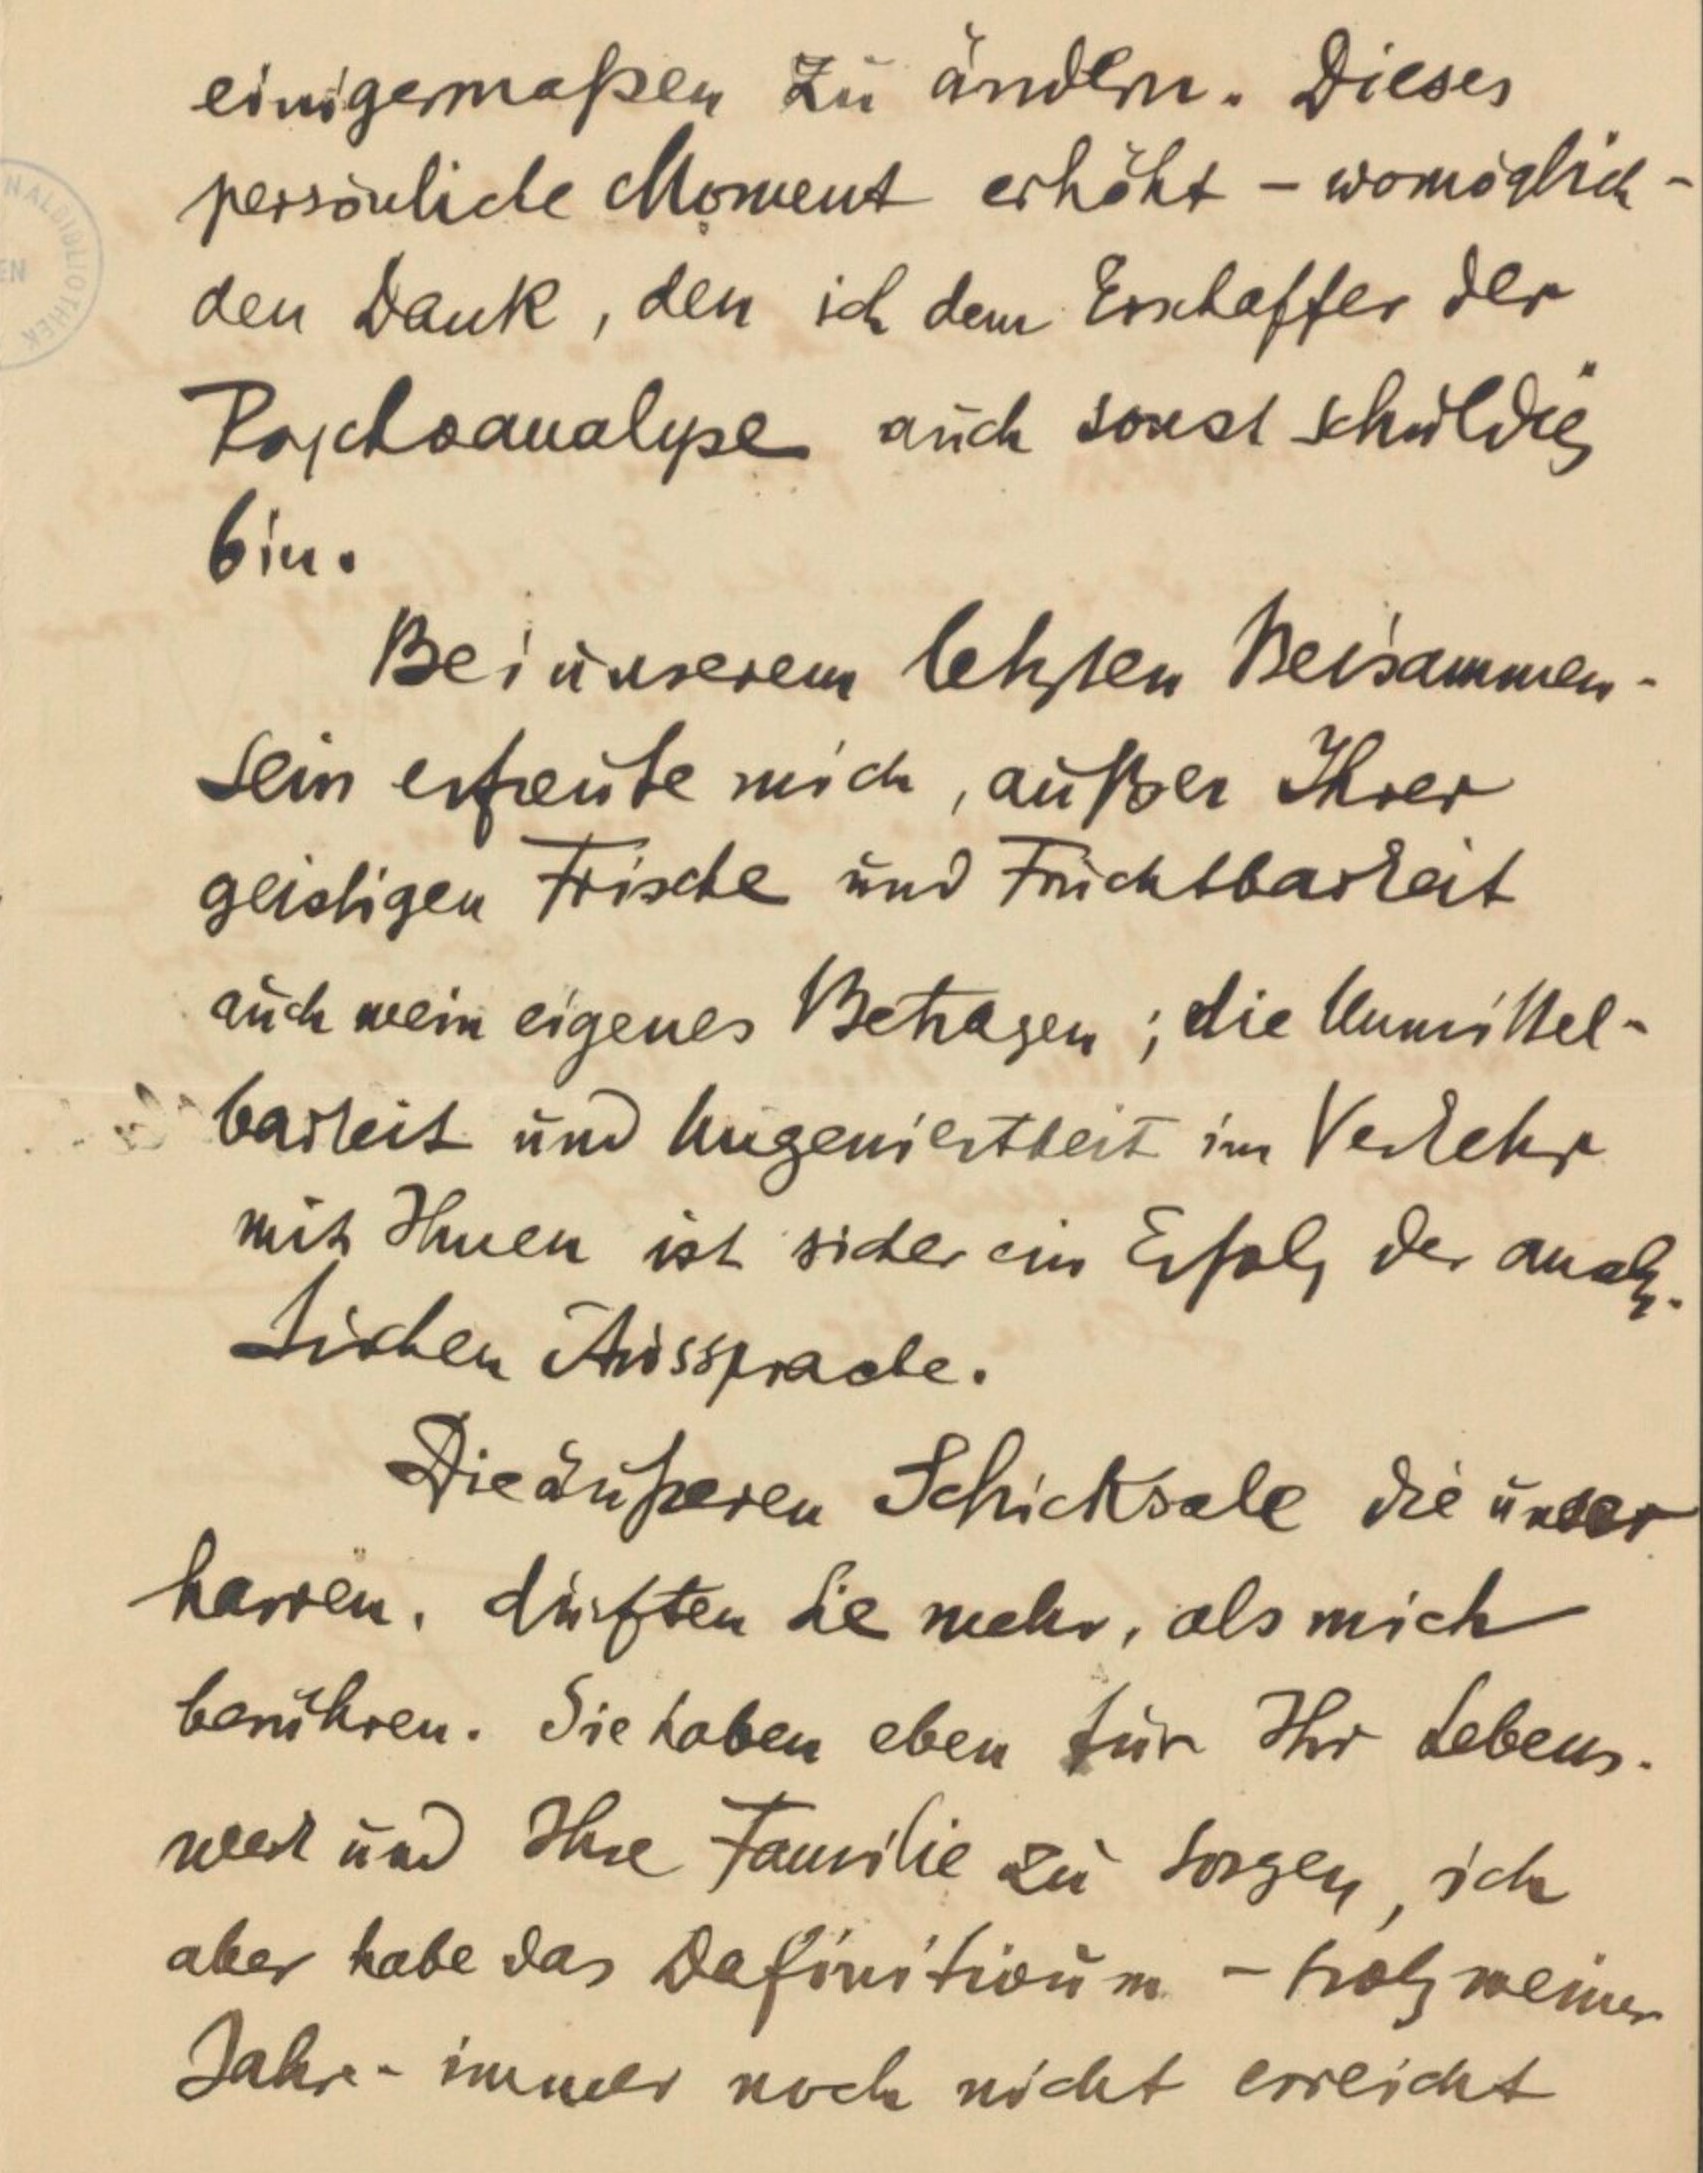 einigermaßen zu ändern. Dieses
persönliche Moment erhöht – womöglich –
den Dank, den ich dem Erschaffer der
Psychoanalyse auch sonst schuldig
bin.
Bei unserem letzten Beisammen-
sein erfreute mich, außer Ihrer
geistigen Frische und Fruchtbarkeit
auch mein eigenes Betragen; die Unmittel-
barkeit und Ungeniertheit im Verkehr
mit Ihnen ist sicher ein Erfolg der analy-
tischen Aussprache.
Die äußeren Schicksale die unser
harren, dürften Sie mehr, als mich
berühren. Sie haben eben für Ihr Lebens-
werk und Ihre Familie zu sorgen, ich
aber habe das Definitivum – trotz meiner
Jahre – immer noch nicht erreicht
NALBIBLIOTHEK
EN